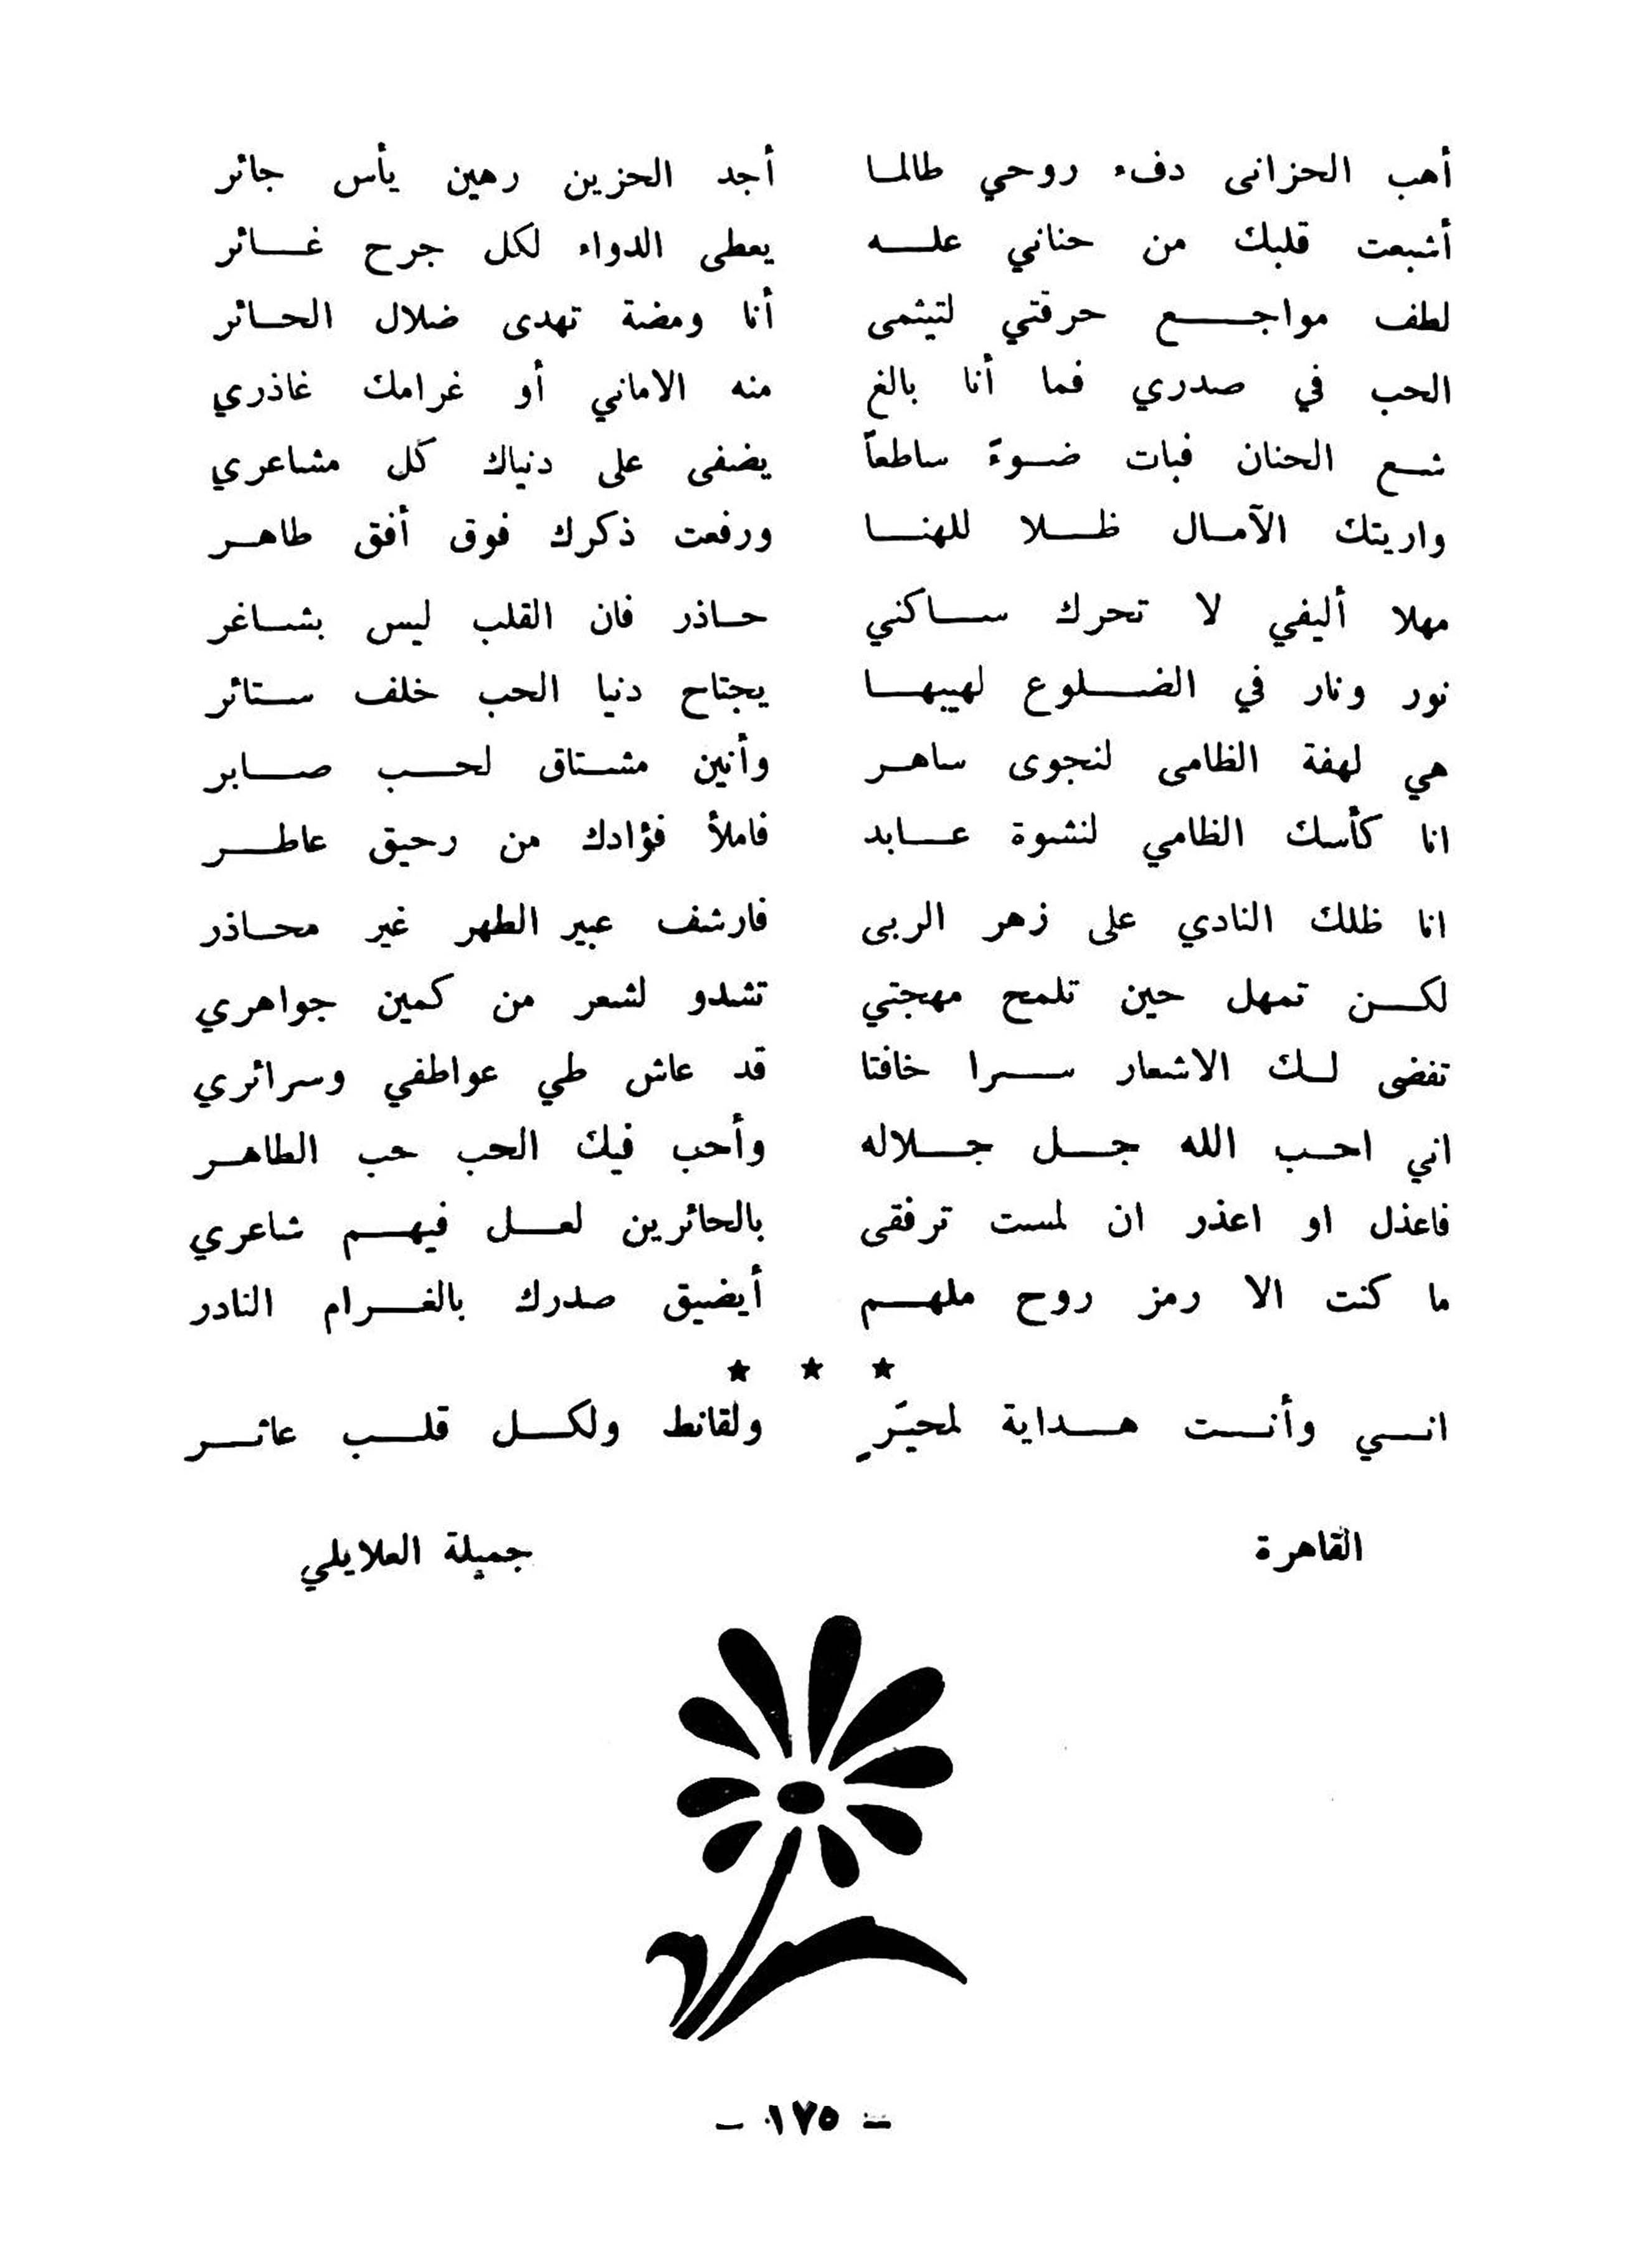 أهب الحزانى دفء روحي طالما أجد الحزين رهين يأس جائر
أشبعت قلبك من حناني عله يعطى الدواء لكل جرح غائر
لطف مواجع حرقتي لتيثمى أنا ومضة تهدى ضلال الحائر
الحب في صدري فما أنا بالغ منه الاماني أو غرامك غاذري
شع الحنان فبات ضوءً ساطعاً يضفى على دنياك كل مشاعري
واريتك الآمال ظلا للهنا ورفعت ذكرك فوق أفق طاهر
مهلا أليفي لا تحرك ساكني حاذر فان القلب ليس بشاغر
نور ونار في الضلوع لهيبها يجتاح دنيا الحب خلف ستائر
هي لهفة الظامى لنجوى ساهر وأنين مشتاق لحب صابر
انا كأسك الظامي لنشوة عابد فاملأ فؤادك من رحيق عاطر
انا ظلك النادي على زهر الربى فارشف عبير الطهر غير محاذر
لكن تمهل حين تلمح مهجتي تشدو لشعر من كمين جواهري
تفضى لك الاشعار سرا خافتا قد عاش طي عواطفي وسرائري
اني احب الله جل جلاله وأحب فيك الحب حب الطاهر
فاعذل او اعذر ان لمست ترفقى بالحائرين لعل فيهم شاعري
ما كنت الا رمز روح ملهم أيضيق صدرك بالغرام النادر
★ ★ ★
اني وأنت هداية لمحيَّرٍ ولقانط ولكل قلب عاثر
القاهرة جميلة العلايلي
– ١٧٥ –